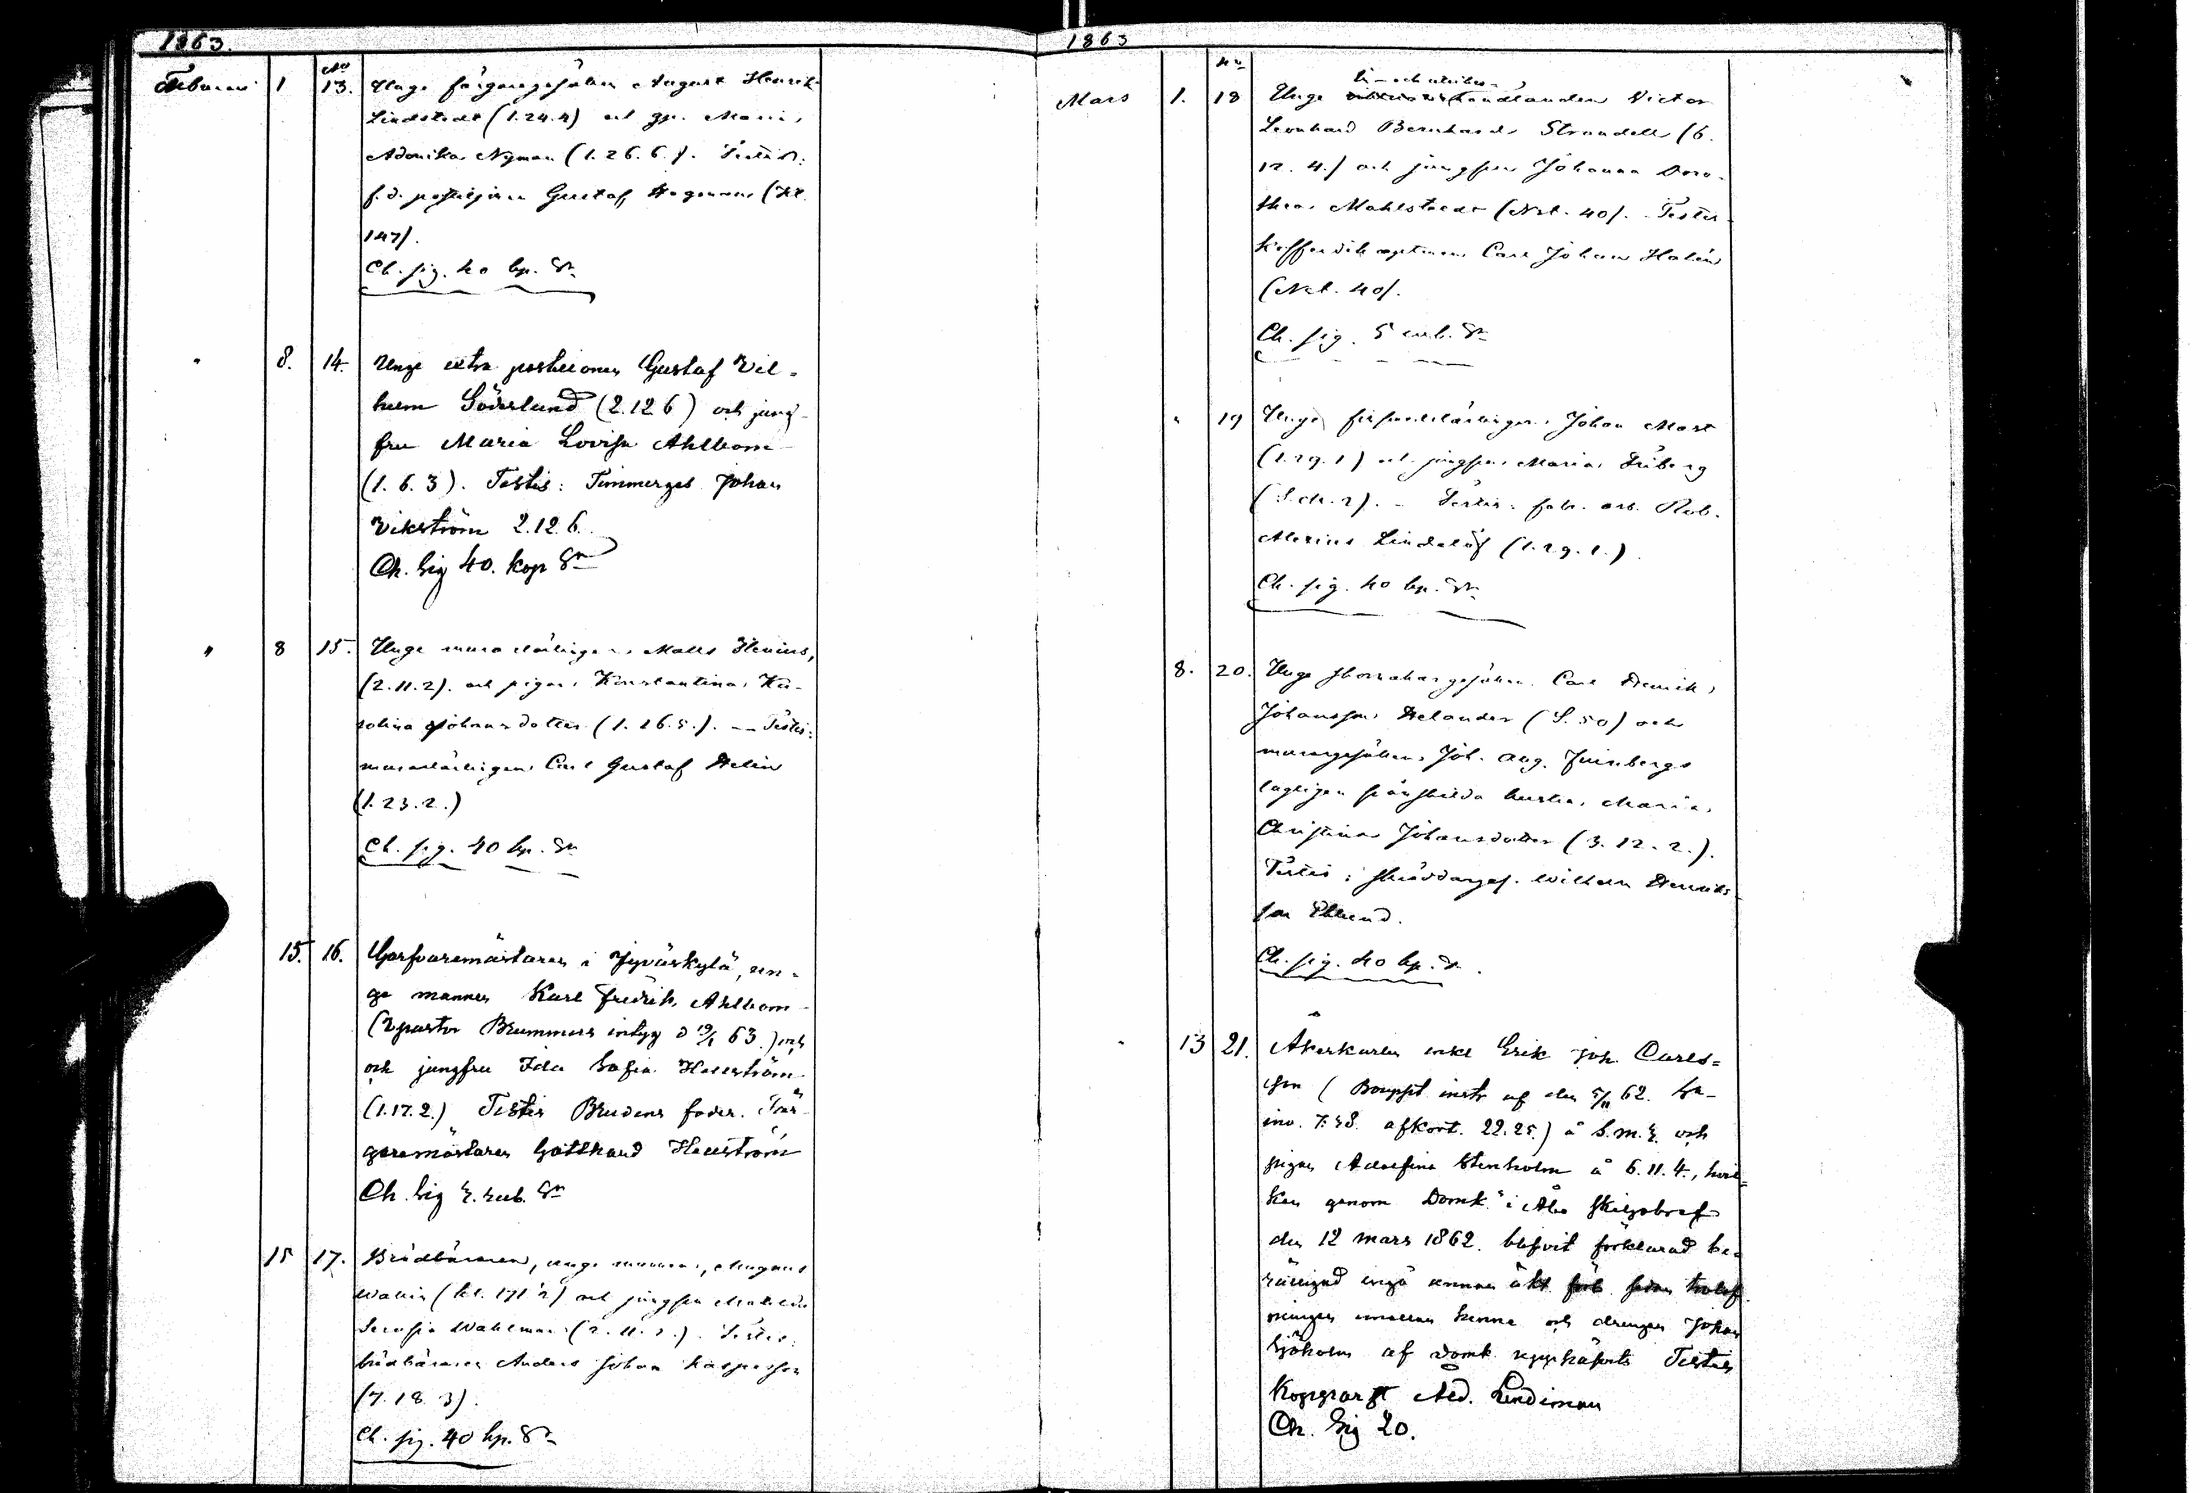 1863.
No
Februari 1 13. Unge färgaregesällen August Henrik
Lindstedt (1.24.4) och Maria
Adonika Nyman (1.26.6). Testis:
f.d. Gustaf Hagman (Kl.
147).
Ch. sig. 40 kp. Sr
" 8. 14. Unge extra postiljonen Gustaf Vil-
helm Söderlund (2.12 6) och jung-
fru Maria Lovisa Ahlbom
(1. 6. 3). Testis: Timmerges Johan
Vikström 2.12 6.
Ch. Sig 40. kop Sr
" 8 15. Unge murarelärlingen Matts
(2.11.2). och pigan Konstantina Ka-
rolina Johansdotter (1. 26.5.). -- Testis:
murarelärlingen Carl Gustaf Helin
(1.23.2.)
Ch. sig. 40 kp. Sr
15. 16. Garfvaremästaren i Jyväskylä, un-
ge mannen Karl Fredrik Ahlbom
(Vpastor Brummers intyg d 19/1 63.) och
och jungfru Ida Sofia Hellström
(1.17.2.) Testis Brudens fader. Fär-
garemästaren Gotthard Hellström
Ch. Sig rub. Sr
15 17. Brädbäraren, unge mannen, Magnus
Wallin (kl. 171½) och jungfru Matilda
Serafia Wahlman (2.11. 2.). Testis:
brädbäraren Anders Johan Kaspersson
(7. 18. 3).
Ch. sig. 40 kp. Sr
1863
No
Mars 1. 18 Unge handlanden Victor
Leonhard Bernhard Strandell (6.
12. 4.) och jungfru Johanna Doro-
thea Mahlstedt (Nrt. 40). Testis
Kofferdikaptenen Carl Johan Halin
(Nrt. 40).
Ch. sig. 5 rub. Sr
" 19 Unge Johan Mart
(1.29.1) och jungfru Maria Friberg
(S.ch.2). - Testis: fabr. arb. Rob.
Alexius Lindelöf (1.29.1.)
Ch. sig. 40 kp. Sr
8. 20. Unge gesällen Carl Henrik
Johansson Helander (S. 50) och
muraregesällen Joh. Aug. Feinbergs
lagligen frånskilda hustru, Maria
Christina Johansdotter (3. 12. 2.).
Testis: skräddargес. Wilhelm Henriks-
son Eklund.
Ch. sig. 40 kp. Sr.
" 13 21. Åkarkarlen enkl Erik Joh. Carls-
son ( Bouppt. instr af den 5/11 62.
inv. 7.48. afkort. 22.25.) å S.m. och
pigan Adolfina Stenholm å 6.11.4., hvil-
ken genom Domk. i Åbo skiljobref
den 12 mars 1862. blifvit förklarad be-
rättigad ingå annat äkt. sedan trolof-
ningen emellan henne och drengen Johan
Sjöholm af domk. upphäfvits Testis
Kopparsl Ald. Lindeman
Ch. Sig 20.